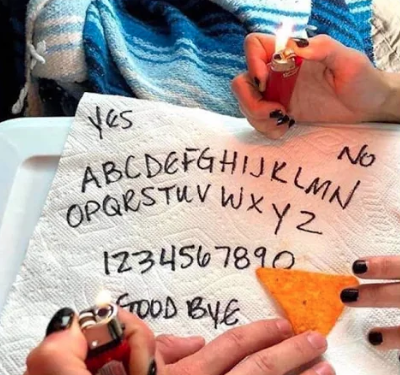 YES
NO
ABCDEFGHIJKLMN
OPQRSTUVWXYZ
1234567890
GOOD BYE